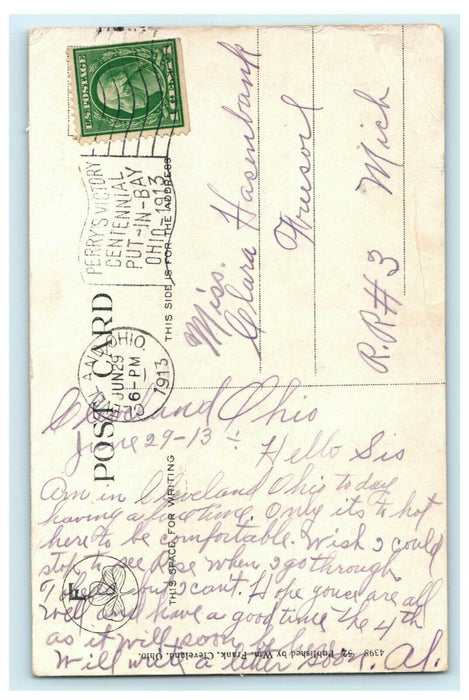 U.S. POSTAGE
1 CENT 1
PERRY'S VICTORY
CENTENNIAL
PUT-IN-BAY
OHIO-1913
CLEVELAND, OHIO
JUN 29
6-PM
1913
POST CARD
THIS SIDE IS FOR THE ADDRESS
Miss.
Clara Hasenbank
Freesoil
R.R#3 Mich
THIS SPACE FOR WRITING
Cleveland Ohio
June 29-13
Hello Sis
Am in Cleveland Ohio today
having a fine time. Only its to hot
here to be comfortable. Wish I could
stop to see Rose when I go through
but I cant. Hope youse are all
well and have a good time the 4th
as it will soon be here.
Will write a letter soon. Al.
F
4398 Published by Wm. Frank, Cleveland, Ohio.